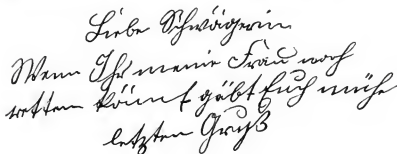 Liebe Schwägerin
Wenn Ihr meine Frau noch
retten könnt gäbt Euch mühe
letzten Gruß